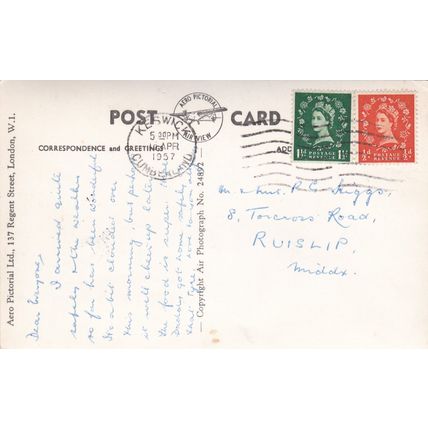 POST CARD
AERO PICTORIAL
AIR VIEW
CORRESPONDENCE and GREETINGS
KESWICK
5 30PM
APR
1957
CUMBERLAND
POSTAGE
REVENUE
1½D
1½D
½D
POSTAGE
REVENUE
Aero Pictorial Ltd., 137 Regent Street, London, W.1.
Copyright Air Photograph No. 24892
Dear Everyone,
I arrived quite
safely & the weather
so far has been wonderful
It's a bit clouded over
this morning, but perhaps
it will cheer up later.
The food is super.
Daddy got home safely
that
Mr & Mrs P.C. Suggs,
8, Torcross Road,
RUISLIP,
Middx.